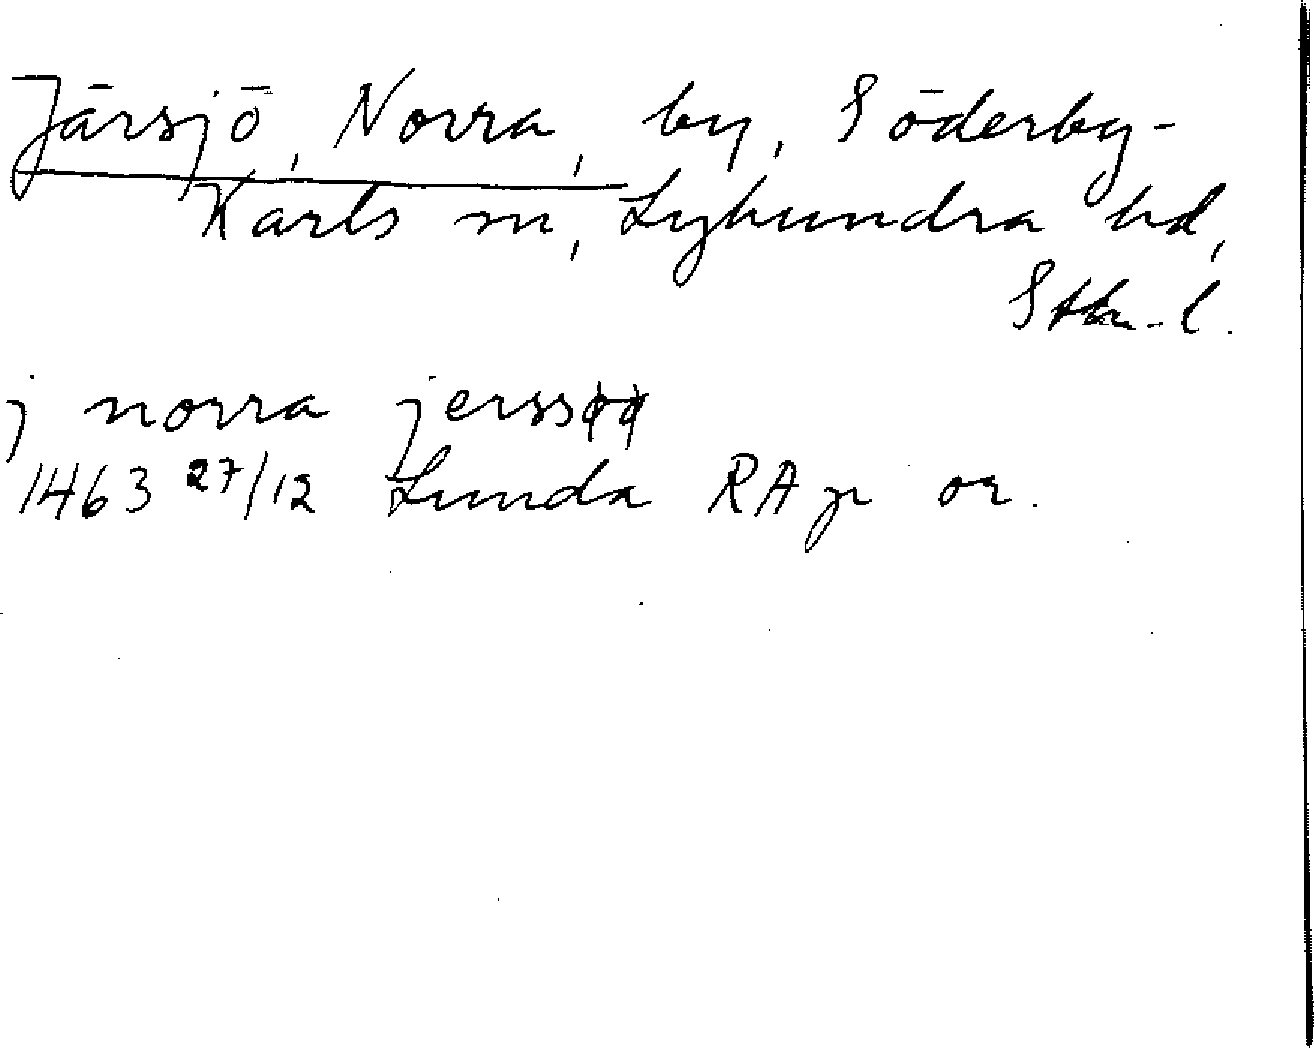 Järsjö, Norra, by, Söderby-
Karls sn, Lyhundra hd,
Sthm-l.
j norra jerssøø
1463 27/12 Lunda RA p or.